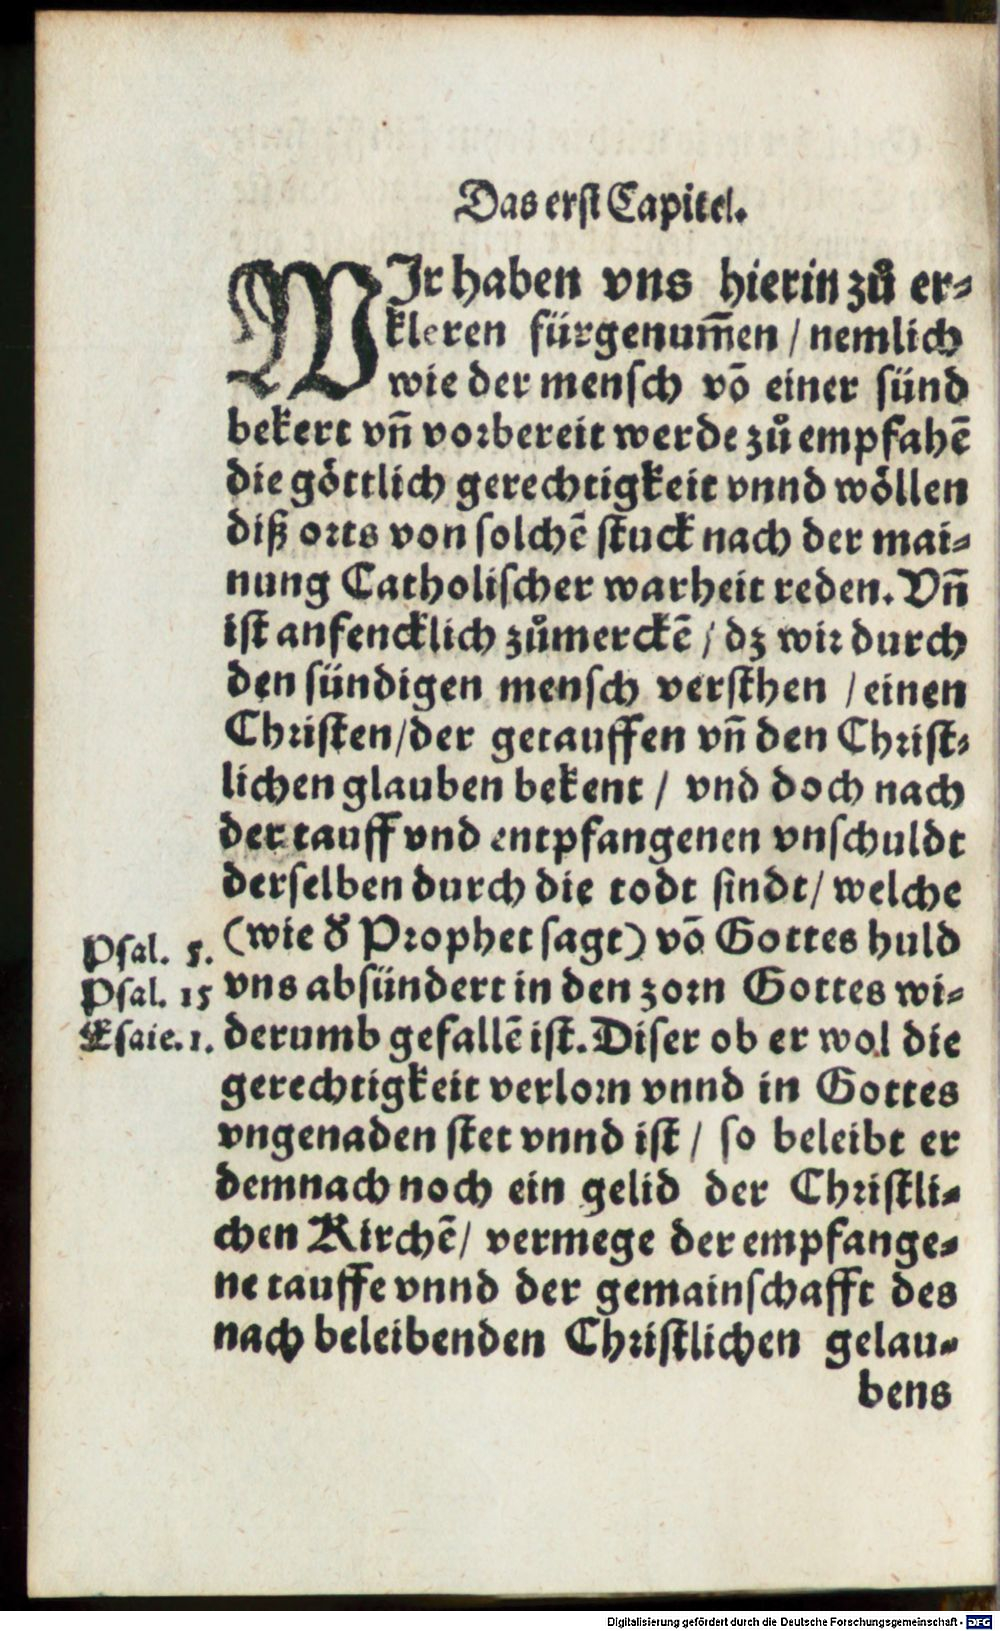 Das erst Capitel.
WIr haben vns hierin zů er⸗
kleren fürgenum̄en / nemlich
wie der mensch vō einer sünd
bekert vn̄ vorbereit werde zů empfahē
die göttlich gerechtigkeit vnnd wöllen
diß orts von solchē stuck nach der mai⸗
nung Catholischer warheit reden. Vn̄
ist anfencklich zůmerckē / dz wir durch
den sündigen mensch versthen / einen
Christen / der getauffen vn̄ den Christ⸗
lichen glauben bekent / vnd doch nach
der tauff vnd entpfangenen vnschuldt
derselben durch die todt sindt / welche
Psal. 5. (wie d' Prophet sagt) vō Gottes huld
Psal. 15 vns absündert in den zorn Gottes wi⸗
Esaie. 1. derumb gefallē ist. Diser ob er wol die
gerechtigkeit verlorn vnnd in Gottes
vngenaden stet vnnd ist / so beleibt er
demnach noch ein gelid der Christli⸗
chen Kirchē / vermege der empfange⸗
ne tauffe vnnd der gemainschafft des
nach beleibenden Christlichen gelau⸗
bens
Digitalisierung gefördert durch die Deutsche Forschungsgemeinschaft - DFG